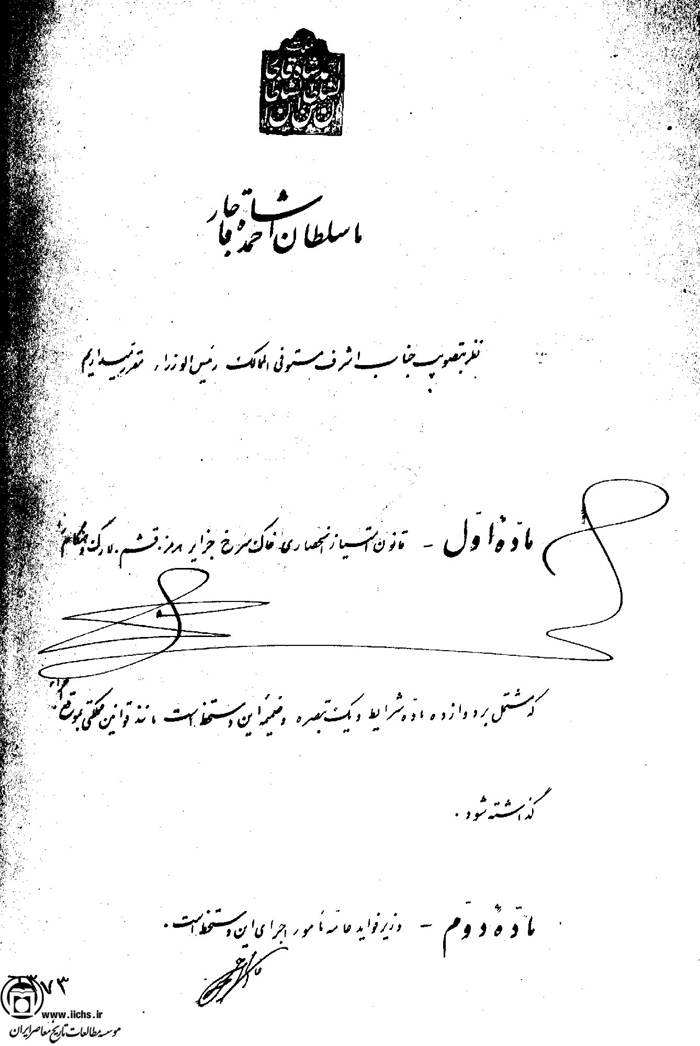 احمد شاه قاجار
السلطان بن السلطان
ما سلطان احمد شاه قاجار
نظر بتصویب جناب اشرف مستوفی الممالک رئیس الوزراء مقرر میداریم
مادهٔ اول - قانون امتیاز انحصاری خاک سرخ جزایر هرمز. قشم. لارک و هنگام
که مشتمل بر دوازده ماده شرایط و یک تبصره و ضمیمه این دستخط است مانند قوانین مملکتی بموقع اجراء
گذاشته شود.
مادهٔ دوم - وزیر فواید عامه مأمور اجرای این دستخط است.
۳۷۳
www.iichs.ir
موسسه مطالعات تاریخ معاصر ایران